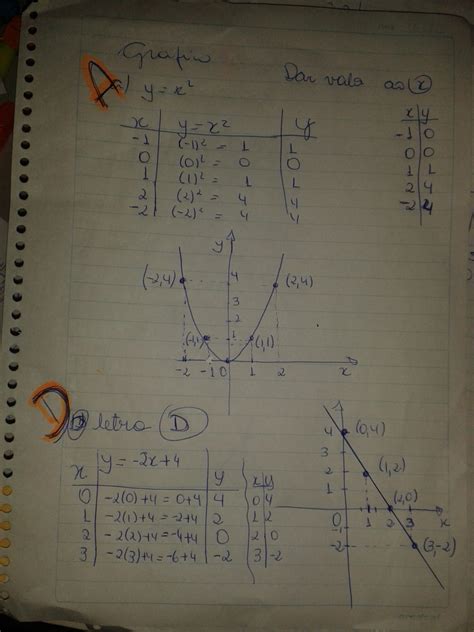 Grafico
Dar valo ao (x)
A a) y = x²
x | y = x² | y
-1 | (-1)² = 1 | 1
0 | (0)² = 0 | 0
1 | (1)² = 1 | 1
2 | (2)² = 4 | 4
-2 | (-2)² = 4 | 4
x | y
-1 | 0
0 | 0
1 | 1
2 | 4
-2 | 4
y
(-2,4) 4 (2,4)
3
2
(-1,1) 1 (1,1)
-2 -1 0 1 2 x
D letra D
x | y = -2x+4 | y
0 | -2(0)+4 = 0+4 | 4
1 | -2(1)+4 = -2+4 | 2
2 | -2(2)+4 = -4+4 | 0
3 | -2(3)+4 = -6+4 | -2
x | y
0 | 4
1 | 2
2 | 0
3 | -2
4 (0,4)
3
2 (1,2)
1 (2,0)
0 1 2 3 x
-1
-2 (3,-2)